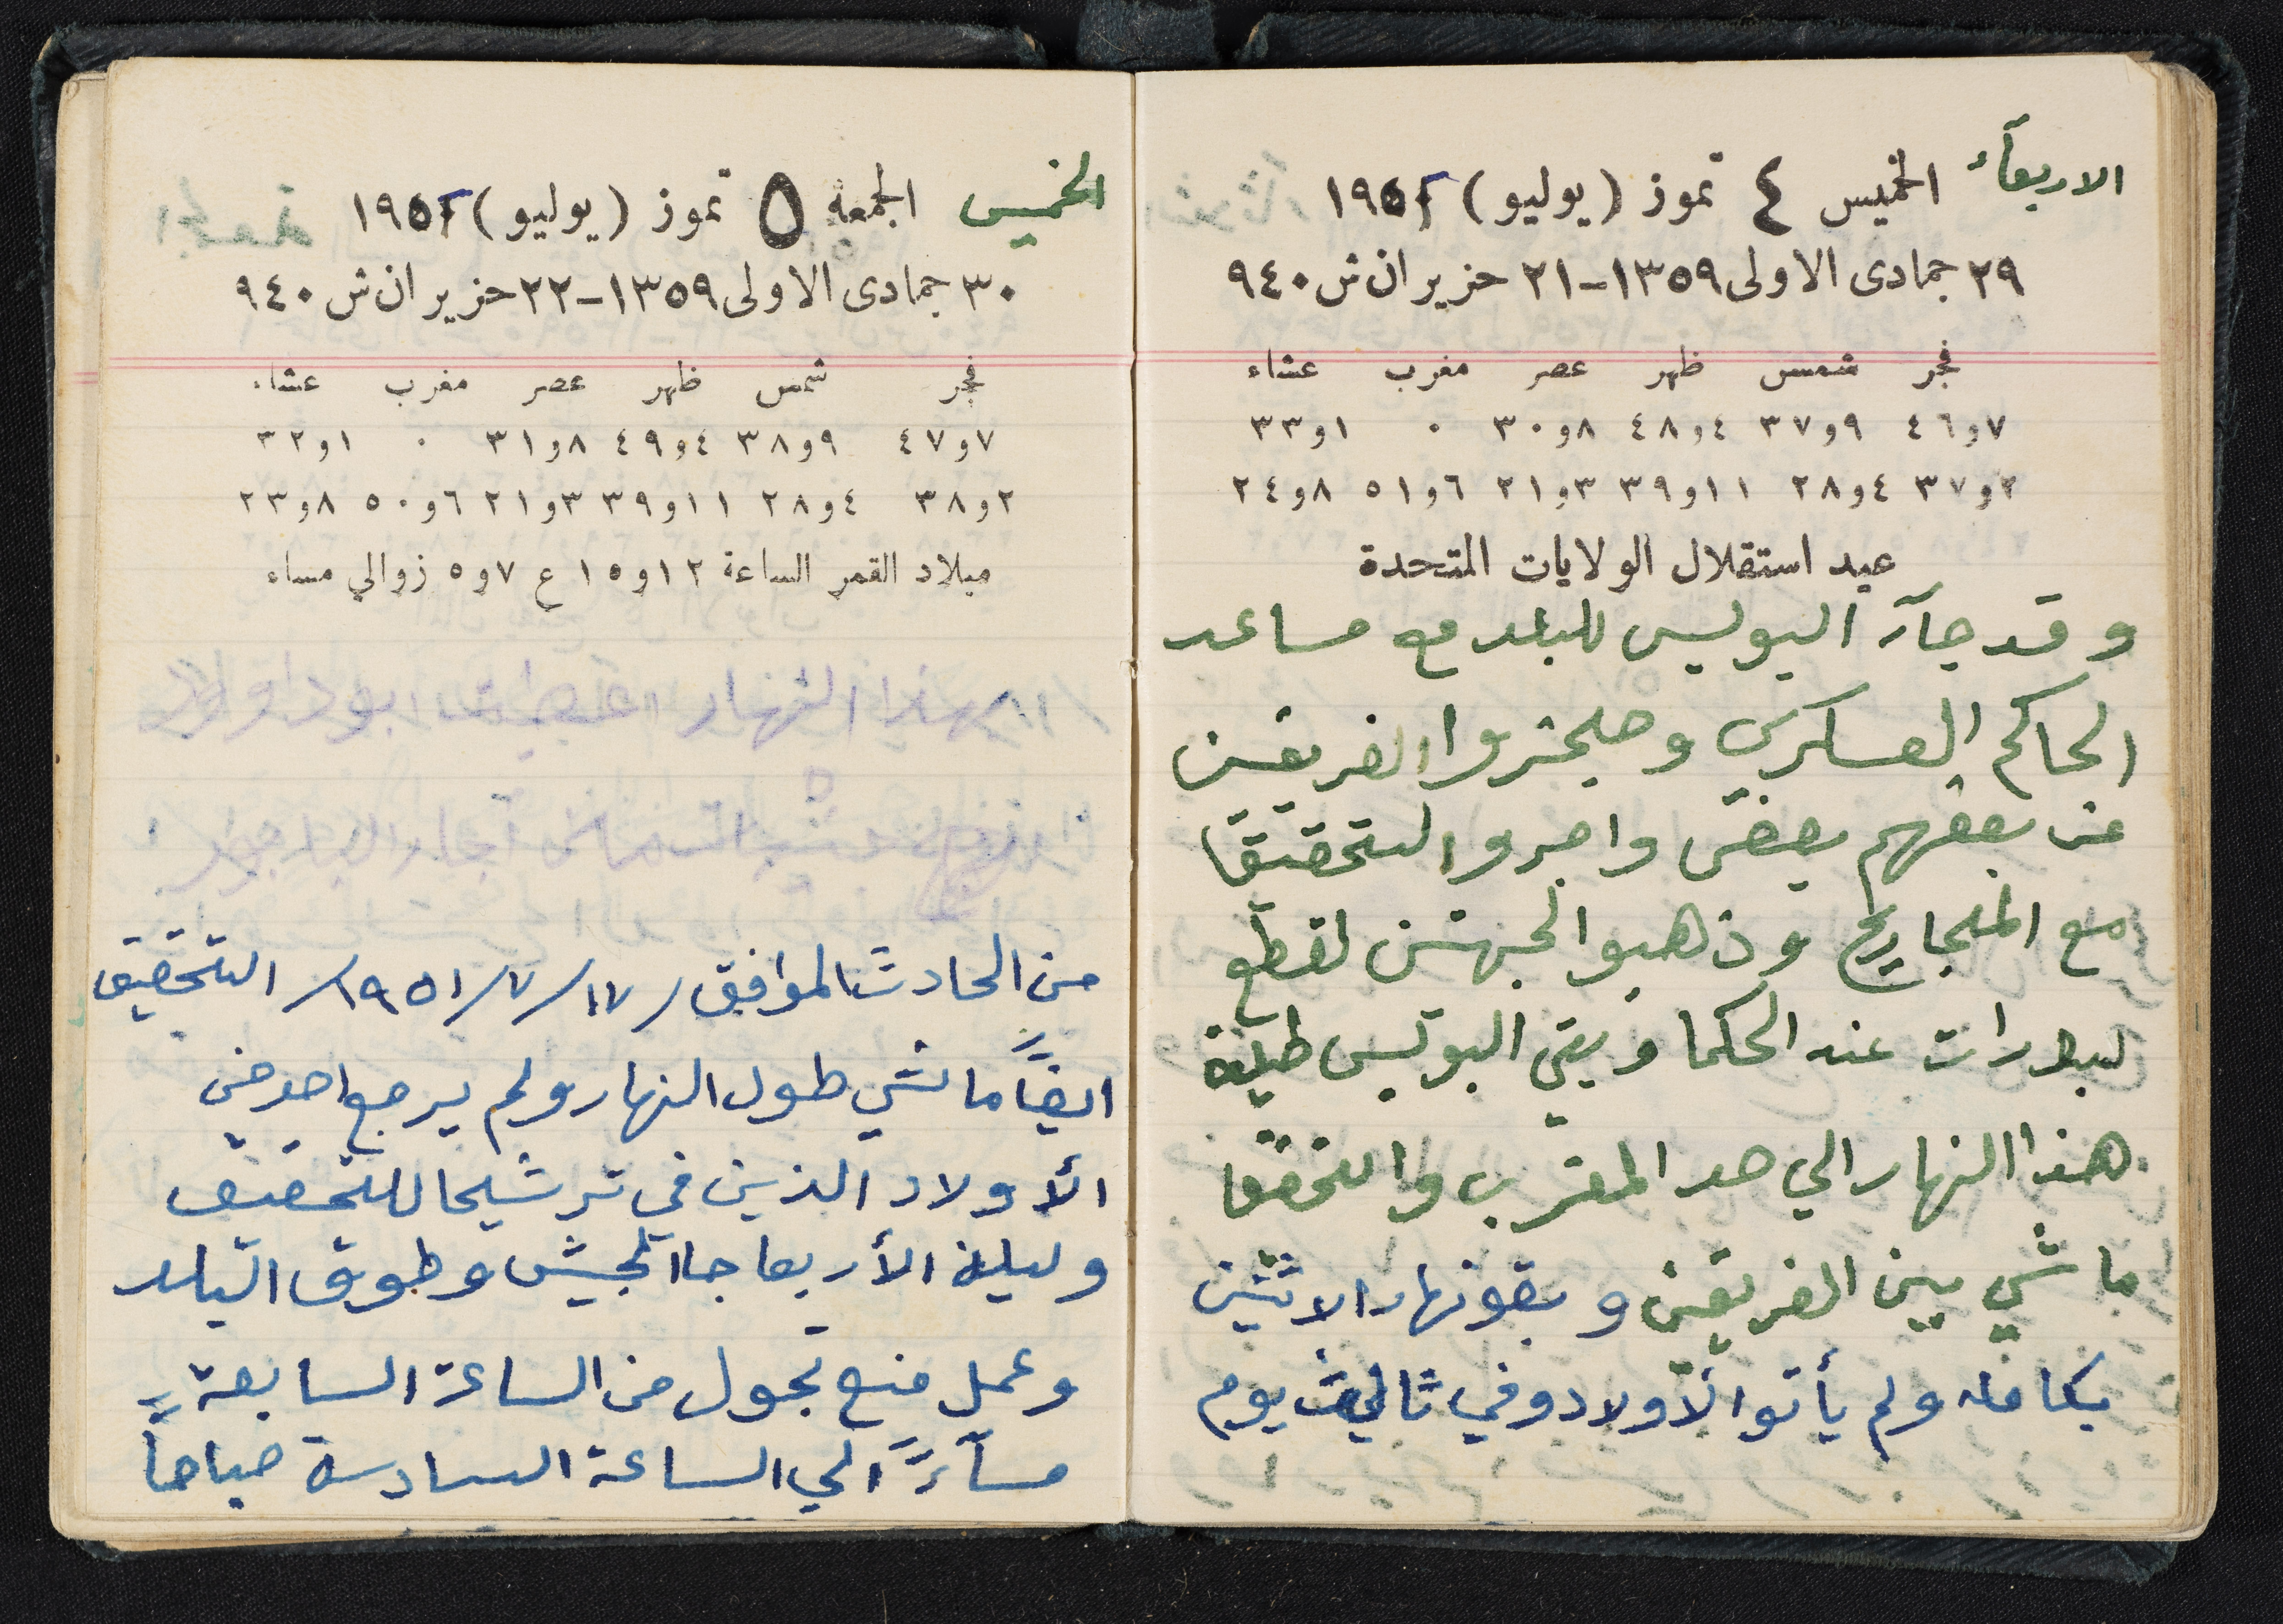 الاربعآء الخميس ٤ تموز (يوليو) ١٩٥١
٢٩ جمادى الاولى ١٣٥٩-٢١ حزيران ش ٩٤٠
فجر شمس ظهر عصر مغرب عشاء
٧و٤٦ ٩و٣٧ ٤و٤٨ ٨و٣٠ ٠ ١و٣٣
٢و٣٧ ٤و٢٨ ١١و٣٩ ٣و٢١ ٦و٥١ ٨و٢٤
عيد استقلال الولايات المتحدة
وقد جآء البوليس للبلد مع مساعد
الحاكم العسكري وحجزوا الفريقين
عن بعضهم بعض واجرو التحقيقا
مع المجاريح وذهبوا الجهتين لقطع
لبورات عند الحكما وبقي البوليس طيلة
هذا النهار الي حد المغرب والتحققا
ماشي بين الفريقين وبقو نهار الاثنين
بكامله ولم يأتوا الأولاد وفي ثالث يوم
الخميس الجمعة ٥ تموز (يوليو) ١٩٥١
٣٠ جمادى الاولى ١٣٥٩-٢٢ حزيران ش ٩٤٠
فجر شمس ظهر عصر مغرب عشاء
٧و٤٧ ٩و٣٨ ٤و٤٩ ٨و٣١ ٠ ١و٣٢
٢و٣٨ ٤و٢٨ ١١و٣٩ ٣و٢١ ٦و٥٠ ٨و٢٣
ميلاد القمر الساعة ١٢و١٥ ع ٧و٥ زوالي مساء
بهذا النهار ابو داوود
من الحادث الموافق /١٧/٧/١٩٥١/ التحقيق
ايضاً ماشي طول النهار ولم يرجع احد من
الأولاد الذين في ترشيحا للتحقيق
وليلة الأربعا جا الجيش وطوق البلد
وعمل منع تجول من الساعة السابعة
مسآءً الي الساعة السادسة صباحاً